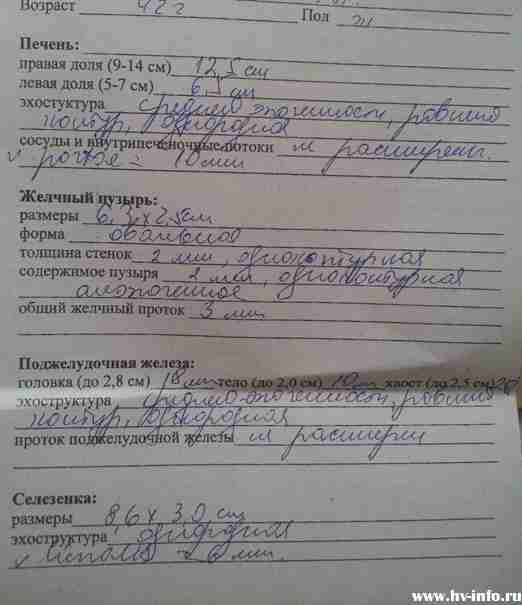 Возраст 42 г Пол ж
Печень:
правая доля (9-14 см) 12,5 см
левая доля (5-7 см) 6,5 см
эхостуктура средней эхогенности, ровный
контур, однородная
сосуды и внутрипеченочные потоки не расширены.
v. portae = 10 мм
Желчный пузырь:
размеры 6,3 x 2,5 см
форма овальная
толщина стенок 2 мм, одноконтурная
содержимое пузыря 2 мм, одноконтурная
анэхогенное
общий желчный проток 3 мм
Поджелудочная железа:
головка (до 2,8 см) 18 мм тело (до 2,0 см) 10 мм хвост (до 2,5 см) 20
эхоструктура средней эхогенности, ровный
контур, однородная
проток поджелудочной железы не расширен
Селезенка:
размеры 8,6 x 3,0 см
эхоструктура однородная
v. lienalis - 6 мм.
www.hv-info.ru